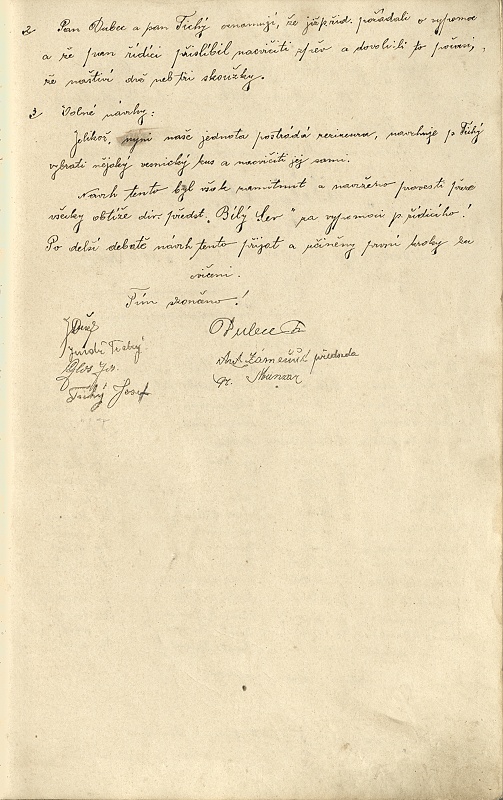 2 Pan Dubec a pan Tichý oznamují, že již p. říd. požádali o výpomoc
a že pan řídící přislíbil nacvičiti zpěv a dovolí-li to počasí,
že navštíví dvě neb tři skoužky.
3 Volné návrhy:
Jelikož, nyní naše jednota postrádá režiseura, navrhuje p. Tichý
vybrati nějaký vesnický kus a nacvičiti jej sami.
Návrh tento byl však zamítnut a navrženo provésti přes
všecky obtíže div. předst. „Bílý Lev" za vypomoci p. řídícího!
Po delší debatě návrh tento přijat a učiněny první kroky ku
cvičení.
Tím skončeno!
Dubec
Jindř. Tichý
Ant. Zámečník předseda
Tichý Josef
Fr. Munzar